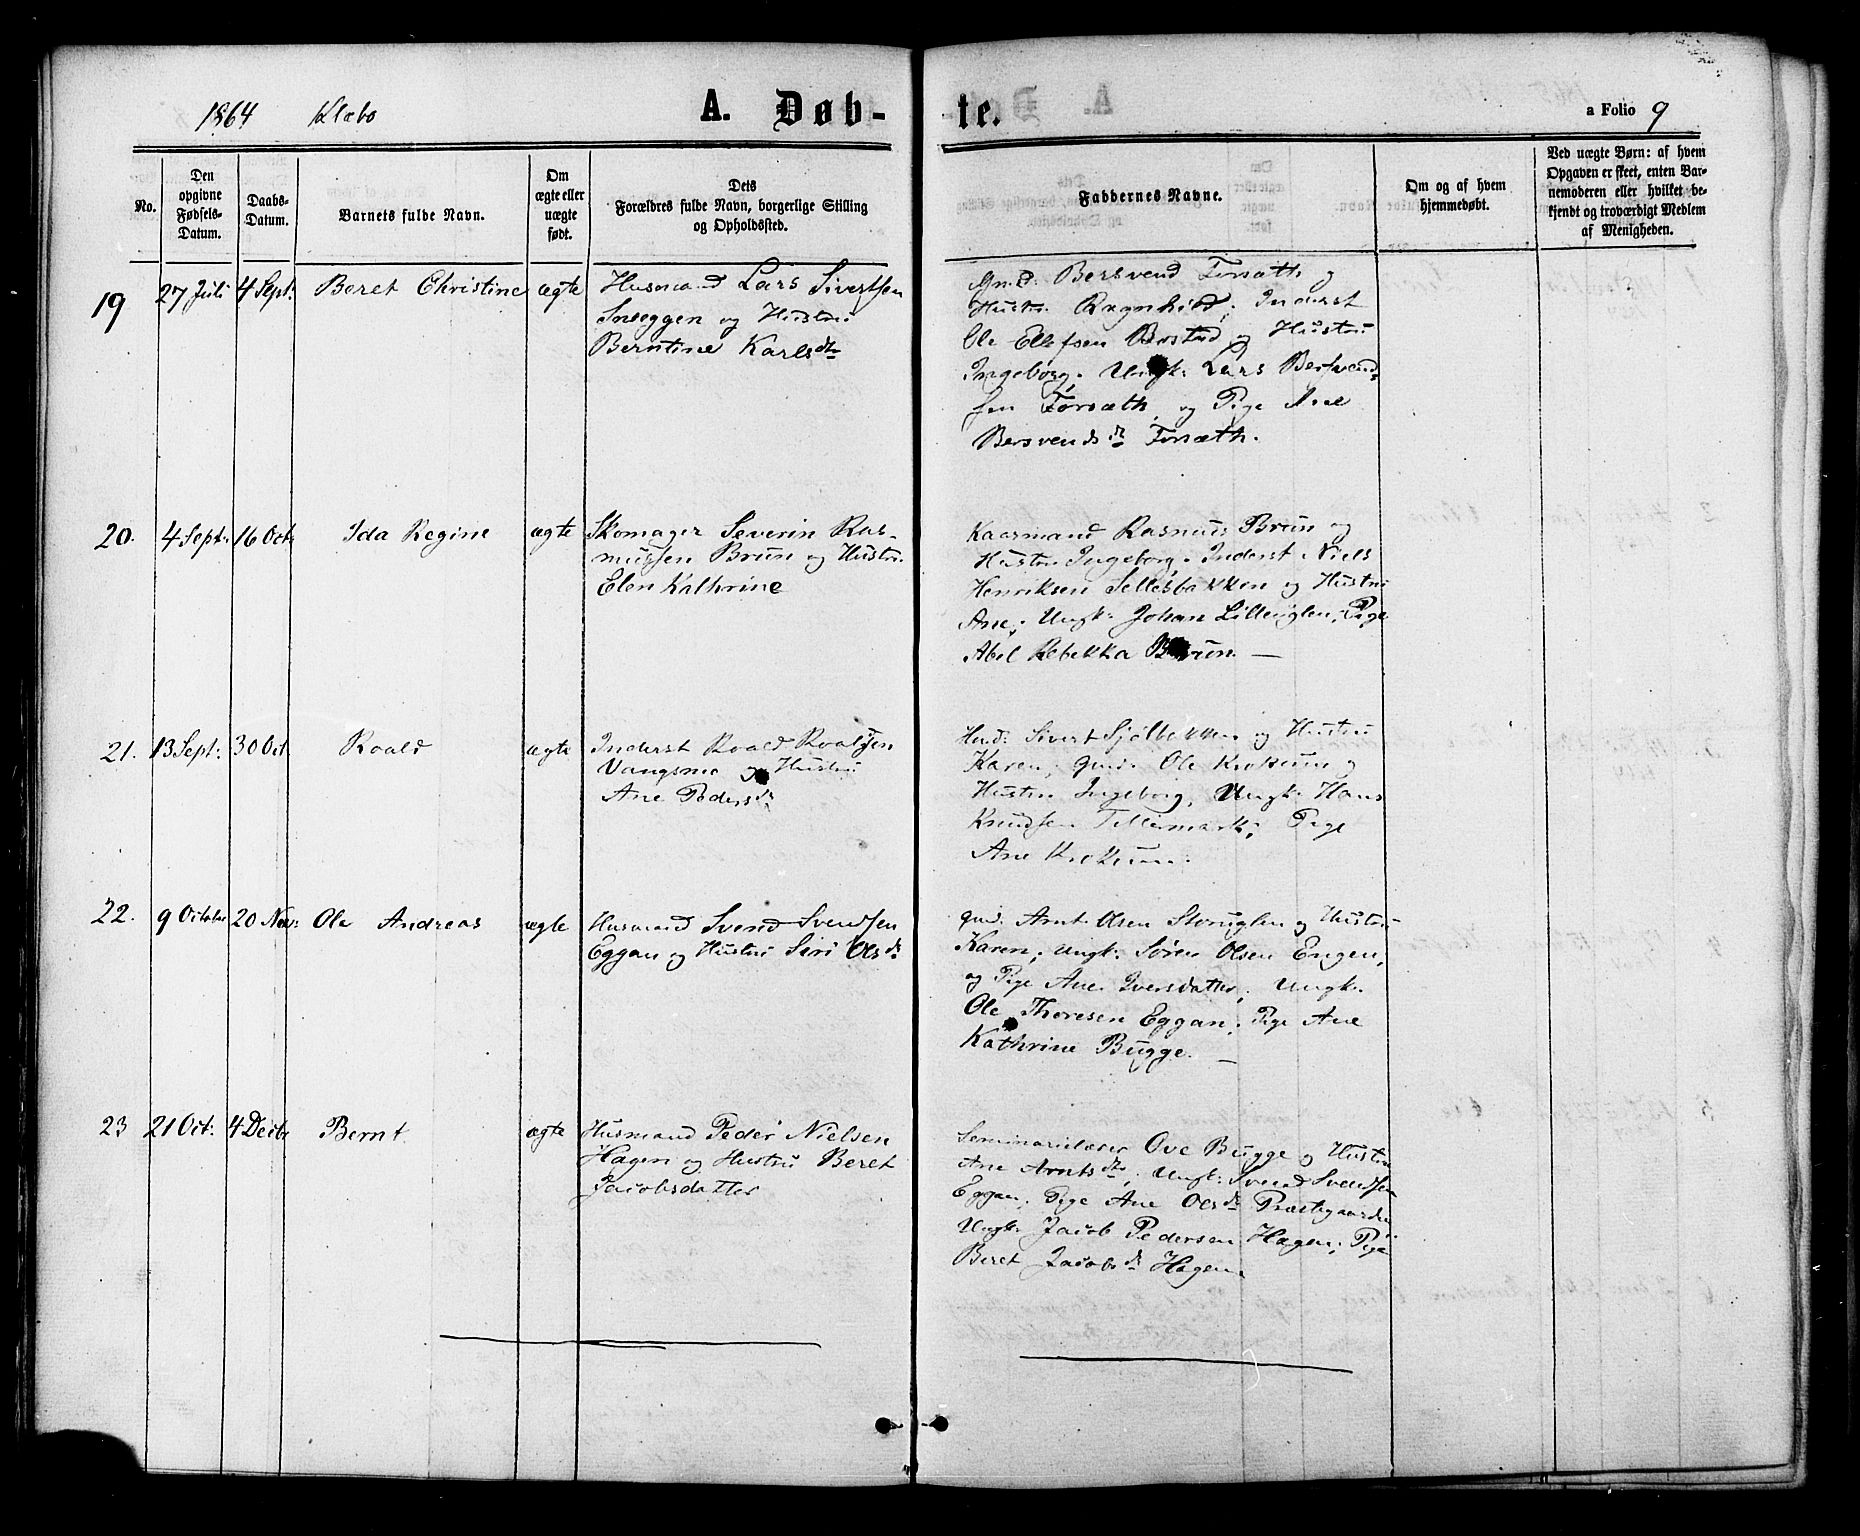 1864 Klæbo A. Døb-
te. a Folio 9
No.
Den
opgivne
Fødsels-
Datum.
Daabs-
Datum.
Barnets fulde Navn.
Om
ægte eller
uægte
født.
Dets
Forældres fulde Navn, borgerlige Stilling
og Opholdssted.
Faddernes Navne.
Om og af hvem
hjemmedøbt.
Ved uægte Børn: af hvem
Opgaven er skeet, enten Bar-
nemoderen eller hvilket be-
kjendt og troværdigt Medlem
af Menigheden.
19 27 Juli 4 Sept: Beret Christine ægte
Husmand Lars Sivertsen
Sneeggen og Hustru
Berntine Karlsdtr
Gmd: Bersvend Forsæth og
Hustr: Ragnhild; Inderst
Ole Ellefsen Borstad og Hustru
Ingeborg. Ungk: Lars Bersvend-
sen Forsæth, og Pige Ane
Bersvendsdr Forsæth.
20. 4 Sept: 16 Octr Ida Regine ægte
Skomager Severin Ras-
mussen Brun og Hustru
Elen Kathrine
Kaarmand Rasmus Brun og
Hustru Ingeborg. Inderst Niels
Henriksen Sellesbakken og Hustru
Ane; Ungk: Johan Lilleuglen; Pige
Abel Rebekka Brun. —
21. 13 Sept: 30 Oct. Roald ægte
Inderst Roald Roaldsen
Vangsmo og Hustru
Ane Pedersdr
Husmd: Sivert Sjølbekken og Hustru
Karen; Gmd: Ole Krokum og
Hustru Ingeborg, Ungk: Hans
Knudsen Tellemark; Pige
Ane Krokum.
22. 9 October 20 Nov: Ole Andreas ægte
Husmand Svend Svendsen
Eggan og Hustru Siri Olsdr
Gmd: Arnt Olsen Storuglen og Hustru
Karen; Ungk: Søren Olsen Engen,
og Pige Ane Iversdatter, Ungk:
Ole Thoresen Eggan; Pige Ane
Kathrine Bugge. —
23 21 Oct: 4 Decbr Bernt ægte
Husmand Peder Nielsen
Hagen og Hustru Beret
Jacobsdatter
Seminarielærer Ove Bugge og Hustru
Ane Arntsdtr; Ungk: Svend Svendsen
Eggan; Pige Ane Olsdr Præstegaarden
Ungk: Jacob Pedersen Hagen; Pige
Beret Jacobsdr Hagen.